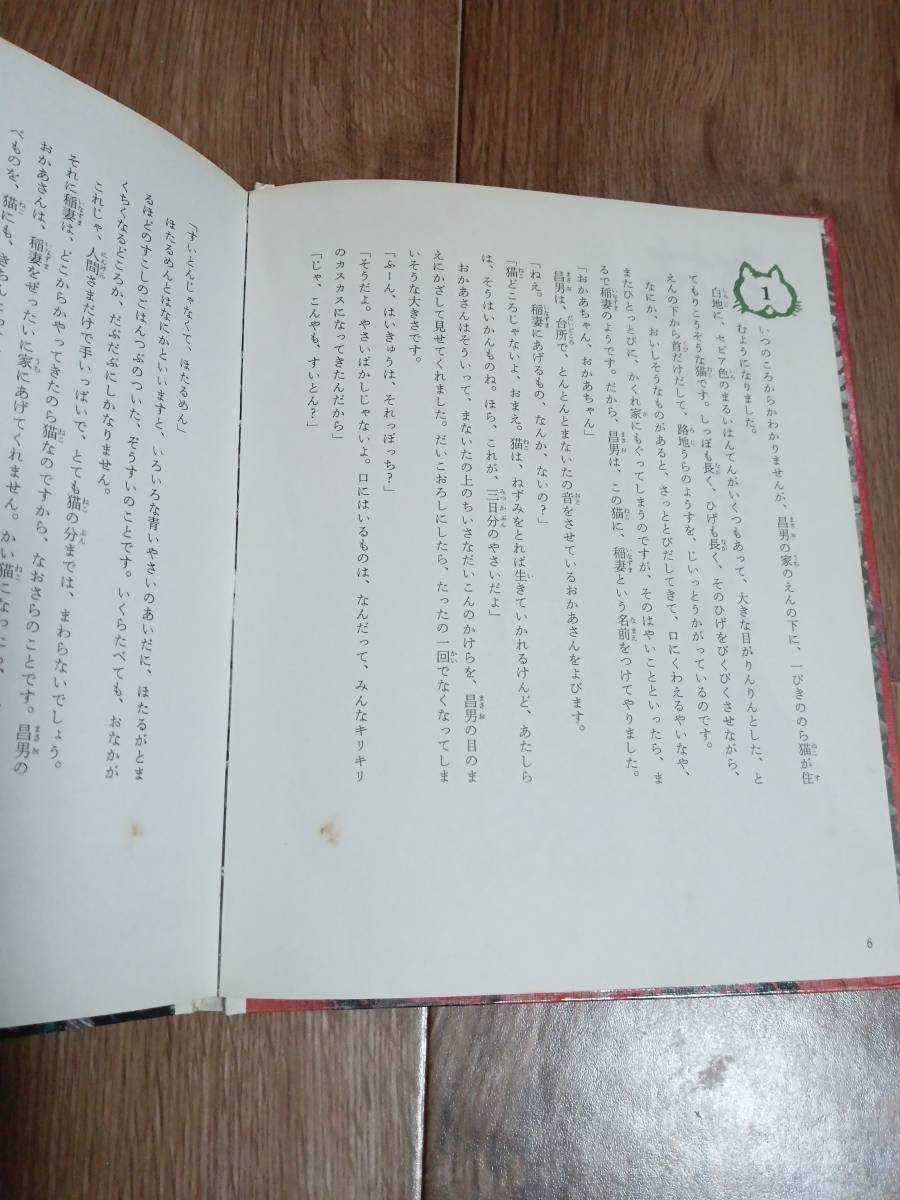 1
いつのころからかわかりませんが、昌男の家のえんの下に、一ぴきののら猫が住
むようになりました。
白地に、セピア色のまるいはんてんがいくつもあって、大きな目がりんりんとした、と
てもりこうそうな猫です。しっぽも長く、ひげも長く、そのひげをぴくぴくさせながら、
えんの下から首だけだして、路地うらのようすを、じいっとうかがっているのです。
なにか、おいしそうなものがあると、さっととびだしてきて、口にくわえるやいなや、
またひとっとびに、かくれ家にもぐってしまうのですが、そのはやいことといったら、ま
るで稲妻のようです。だから、昌男は、この猫に、稲妻という名前をつけてやりました。
「おかあちゃん、おかあちゃん」
昌男は、台所で、とんとんとまないたの音をさせているおかあさんをよびます。
「ねえ。稲妻にあげるもの、なんか、ないの?」
「猫どころじゃないよ、おまえ。猫は、ねずみをとれば生きていかれるけんど、あたしら
は、そうはいかんものね。ほら、これが、三日分のやさいだよ」
おかあさんはそういって、まないたの上のちいさなだいこんのかけらを、昌男の目のま
えにかざして見せてくれました。だいこおろしにしたら、たったの一回でなくなってしま
いそうな大きさです。
「ふーん、はいきゅうは、それっぽっち?」
「そうだよ。やさいばかしじゃないよ。口にはいるものは、なんだって、みんなキリキリ
のカスカスになってきたんだから」
「じゃ、こんやも、すいとん?」
6
「すいとんじゃなくて、ほたるめん」
ほたるめんとはなにかといいますと、いろいろな青いやさいのあいだに、ほたるがとま
るほどのすこしのごはんつぶのついた、ぞうすいのことです。いくらたべても、おなかが
くちくなるどころか、だぶだぶにしかなりません。
これじゃ、人間さまだけで手いっぱいで、とても猫の分までは、まわらないでしょう。
それに稲妻は、どこからかやってきたのら猫なのですから、なおさらのことです。昌男の
おかあさんは、稲妻をぜったいに家にあげてくれません。かい猫になったら、
べものを、猫にも、きちんと